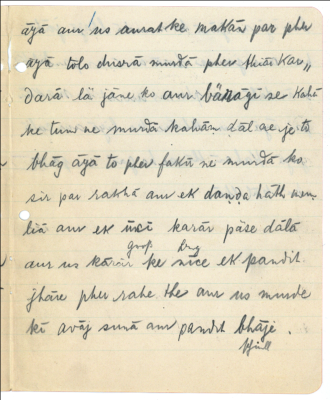 āyā aur us aurat ke makān par pher
āyā to lo dusrā murdā pher thiār kar „
darā lā jāne ko aur bānagī se kahā
ke tum ne murdā kahān dāl ae je to
bhāg āyā to pher fakīr ne murdā ko
sir par rakhā aur ek danda hath men
liā aur ek karār pāse dālā
aur us karār ke nīce ek pandit
jhāre pher rahe the aur us murde
kī avāj sunā aur pandit bhāje .